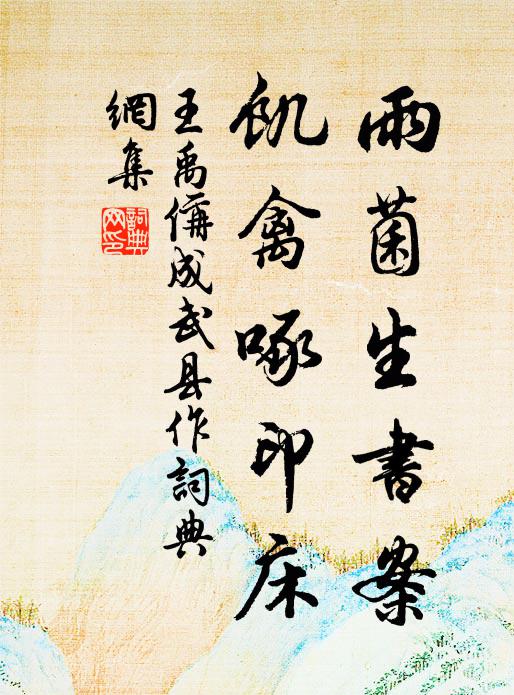 雨菌生書案
飢禽啄印床
王禹偁成武县作詞典
網集
詞典
网印